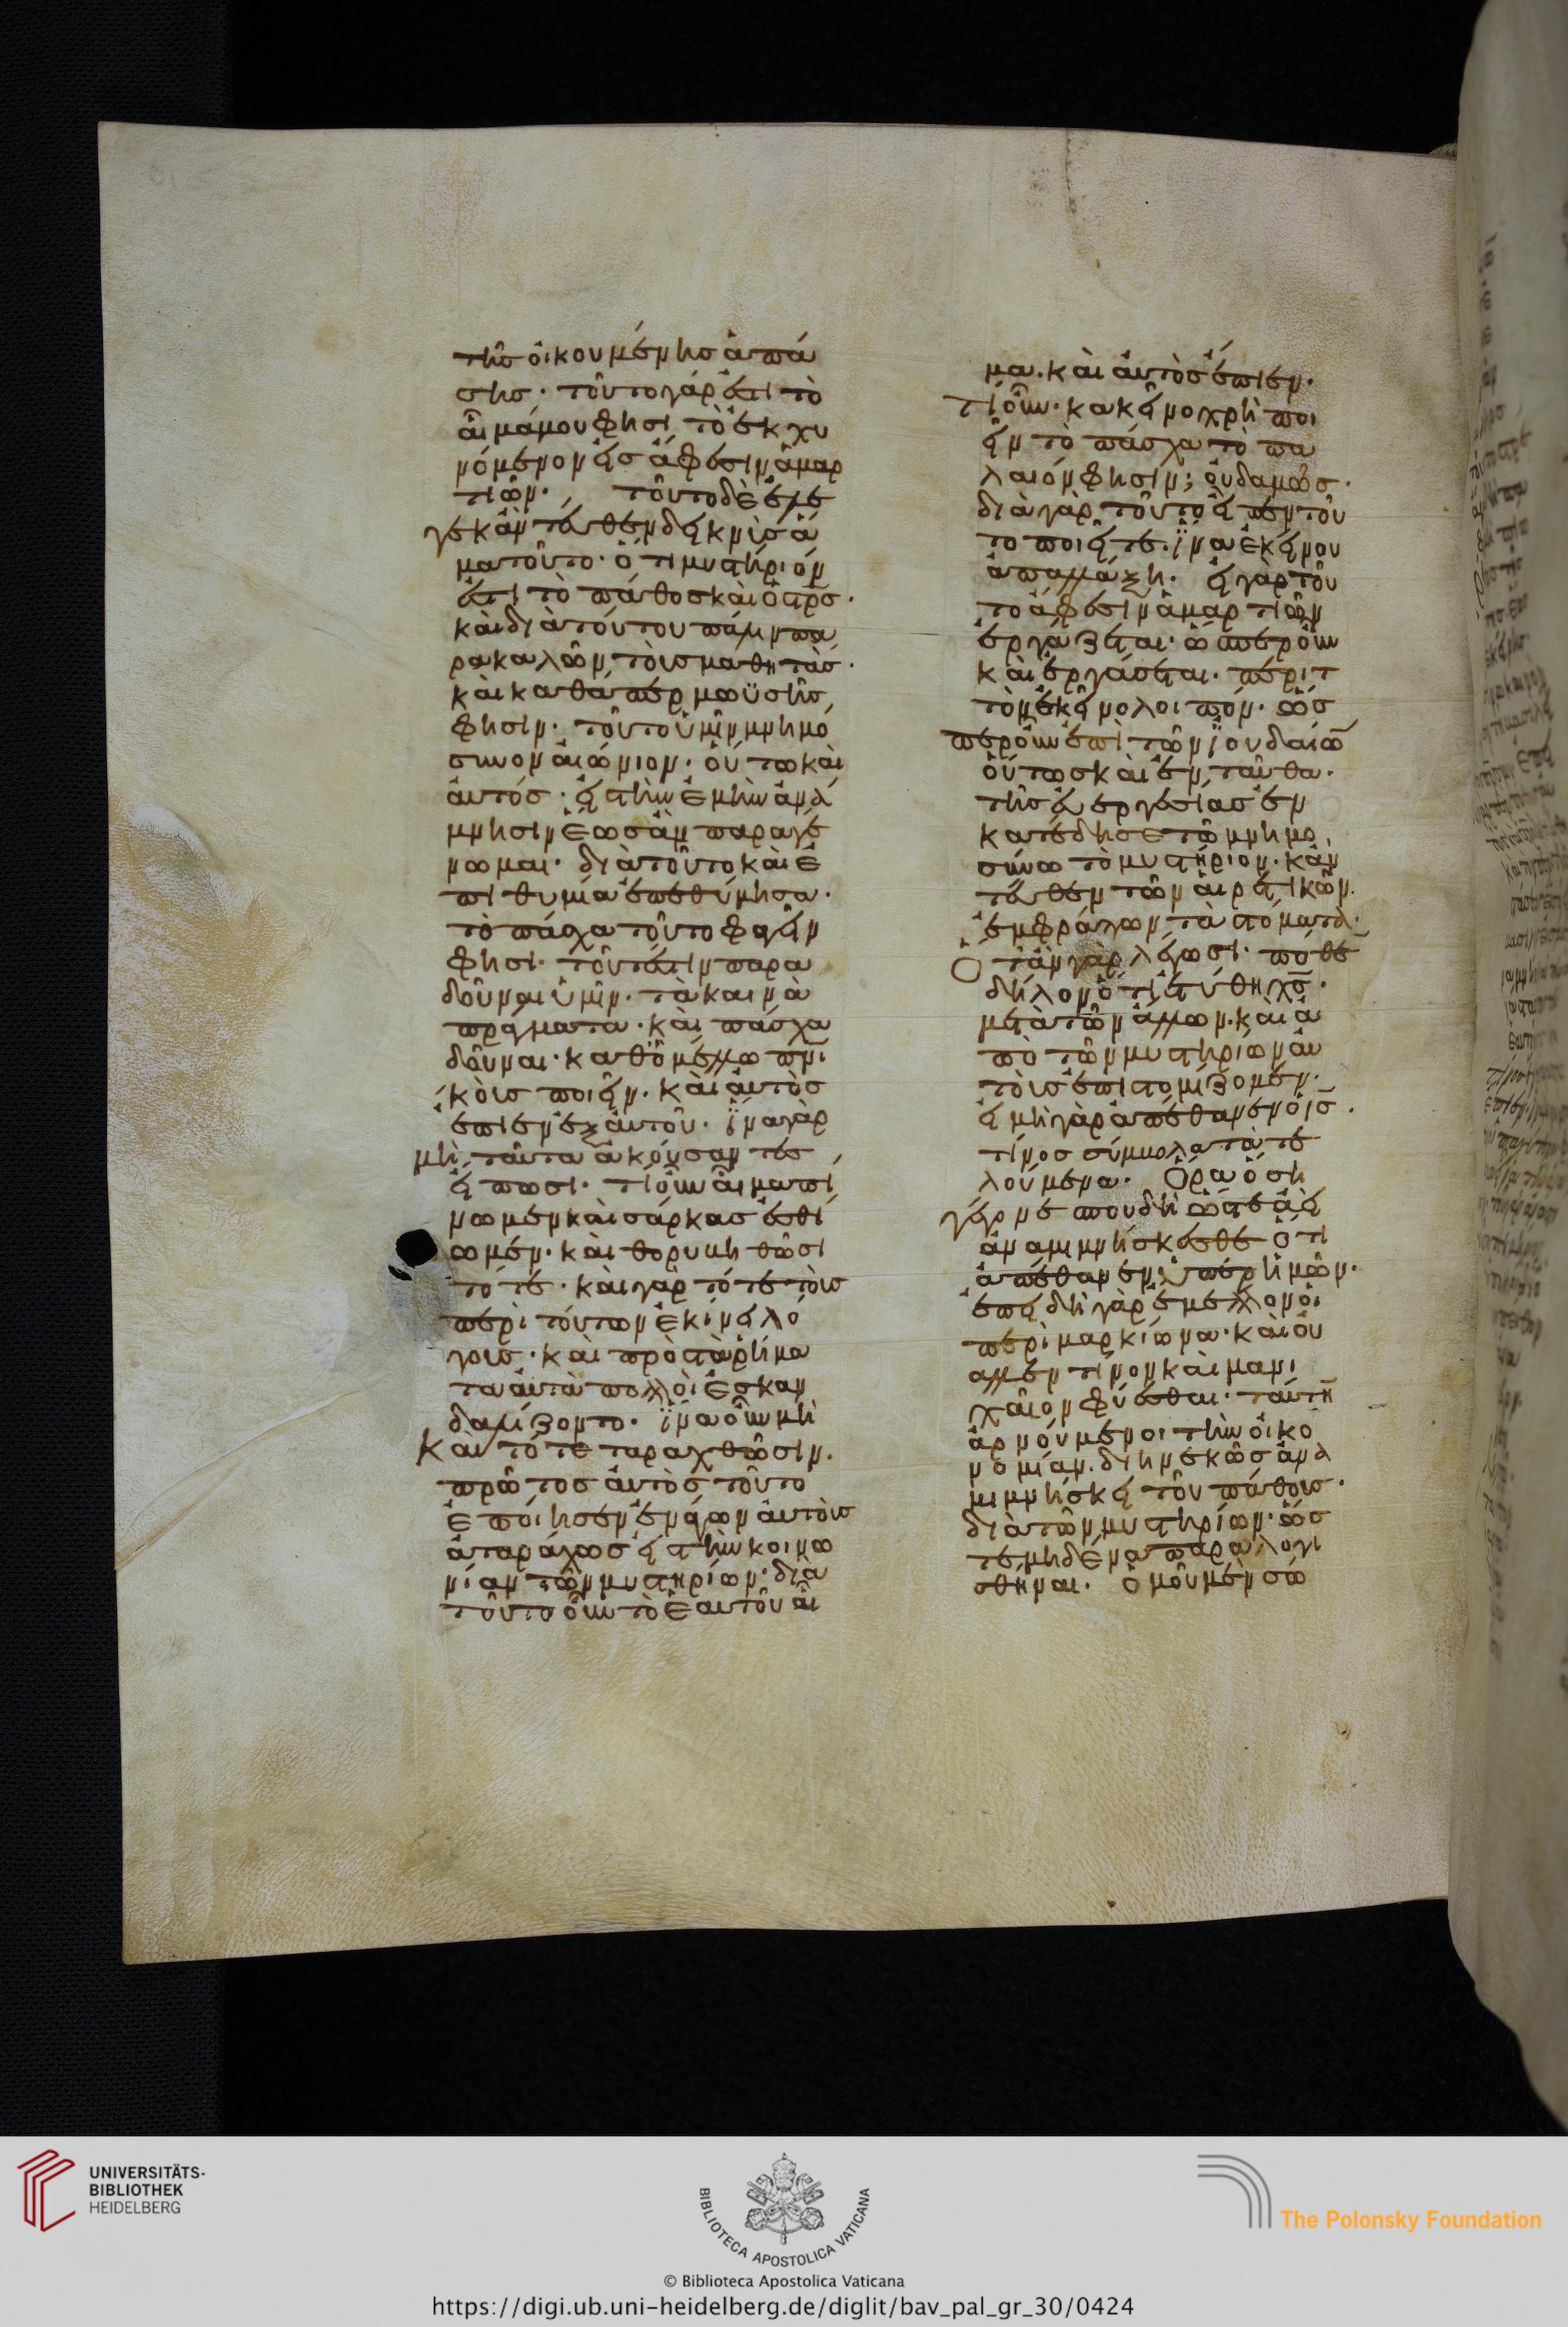 τῆς οἰκουμένης ἁπά
σης· τοῦτο γάρ ἐστι τὸ
αἷμά μου φησὶ, τὸ ἐκχυ
νόμενον εἰς ἄφεσιν ἁμαρ
τιῶν· τοῦτο δὲ ἔλε
γε κἀντεῦθεν δεικνὺς ἅ
μα τοῦτο· ὅτι μυστήριόν
ἐστι τὸ πάθος καὶ ὁ στρσ·
καὶ διὰ τούτου πάλιν πα
ρακαλῶν τοὺς μαθητάς·
καὶ καθάπερ μωϋσῆς
φησίν· τοῦτο ὑμῖν μνημό
συνον αἰώνιον· οὕτω καὶ
αὐτός· εἰς τὴν ἐμὴν ἀνά
μνησιν ἕως ἂν παραγέ
νωμαι· διὰ τοῦτο καὶ ἐ
πιθυμία ἐπεθύμησα·
τὸ πάσχα τοῦτο φαγεῖν
φησι· τουτέστιν παρα
δοῦναι ὑμῖν· τὰ καινὰ
πράγματα· καὶ πάσχα
δοῦναι· καθὃ μέλλω πνι
κοὺς ποιεῖν· καὶ αὐτὸς
ἔπιεν ἐξ αὐτοῦ· ἵνα γὰρ
μὴ ταῦτα ἀκούσαντες
εἴπωσι· τί οὖν αἷμα πί
νωμεν καὶ σάρκας ἐσθί
ωμεν· καὶ θορυβηθῶσι
τότε· καὶ γὰρ τότε τοὺς
περὶ τούτων ἐκίνει λό
γους· καὶ πρὸς τὰ ῥήμα
τα αὐτὰ πολλοὶ ἐσκαν
δαλίζοντο· ἵνα οὖν μὴ
καὶ τότε ταραχθῶσιν·
πρῶτος αὐτὸς τοῦτο
ἐποίησεν ἐνάγων αὐτοὺς
ἀταράχως εἰς τὴν κοινω
νίαν τῶν μυστηρίων· διὰ
τοῦτο οὖν τὸ ἑαυτοῦ αἷ
μα· καὶ αὐτὸς ἔπιεν·
τί οὖν· κακεῖνο χρὴ ποι
εῖν τὸ πάσχα τὸ πα
λαιόν φησιν; οὐδαμῶς·
διὰ γὰρ τοῦτο εἶπεν τοῦ
το ποιεῖτε· ἵνα ἐκείνου
ἀπαλλάξη· εἰ γὰρ τοῦ
το ἄφεσιν ἁμαρτιῶν
ἐργάζεται· ὥσπερ οὖν
καὶ ἐργάσεται· περιτ
τὸν ἐκεῖνο λοιπόν· ὥσ
περ οὖν ἐπὶ τῶν ἰουδαίω̅
οὕτως καὶ ἐνταῦθα·
τῆς εὐεργεσίας ἐν
κατέδησε τῶ μνημο
σύνω τὸ μυστήριον· κἀν
τεῦθεν τῶν αἱρετικῶν
ἐμφράγων τὰ στόματα·
Ὅταν γὰρ λέγωσι· πόθε
δῆλον ὅτι ἐτύθη χσ̅·
μετὰ τῶν ἄλλων· καὶ ἀ
πὸ τῶν μυστηρίων αὐ
τοὺς ἐπιστομίζομεν·
εἰ μὴ γὰρ ἀπέθανεν ὁ ις̅·
τίνος σύμβολα τὰ τε
λούμενα· Ὁρᾶ ὅση
γέγονε σπουδὴ ὥστε ἀεὶ
ἀναμιμνήσκεσθε ὅτι
ἀπέθανεν ὑπὲρ ἡμῶν·
ἐπειδὴ γὰρ ἔμελλον οἱ
περὶ μαρκίωνα· καὶ οὐ
αλλεντῖνον καὶ μανι
χαῖον φύεσθαι· ταύτη̅
ἀρνούμενοι τὴν οἰκο
νομίαν· διηνεκῶς ἀνα
μιμνήσκει τοῦ πάθους·
διὰ τῶν μυστηρίων· ὥσ
τε μηδένα παραλογι
σθῆναι· ὁμοῦ μὲν σώ
UNIVERSITÄTS-
BIBLIOTHEK
HEIDELBERG
BIBLIOTECA APOSTOLICA VATICANA
The Polonsky Foundation
© Biblioteca Apostolica Vaticana
https://digi.ub.uni-heidelberg.de/diglit/bav_pal_gr_30/0424